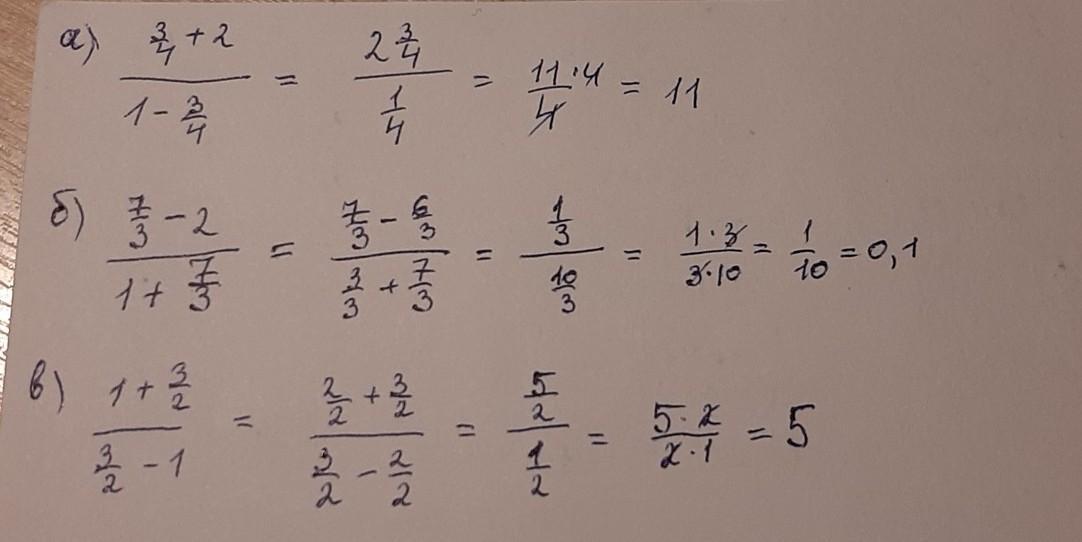 а) (3/4 + 2)/(1 - 3/4) = (2 3/4)/(1/4) = (11·4)/4 = 11
б) (7/3 - 2)/(1 + 7/3) = (7/3 - 6/3)/(3/3 + 7/3) = (1/3)/(10/3) = (1·3)/(3·10) = 1/10 = 0,1
в) (1 + 3/2)/(3/2 - 1) = (2/2 + 3/2)/(3/2 - 2/2) = (5/2)/(1/2) = (5·2)/(2·1) = 5